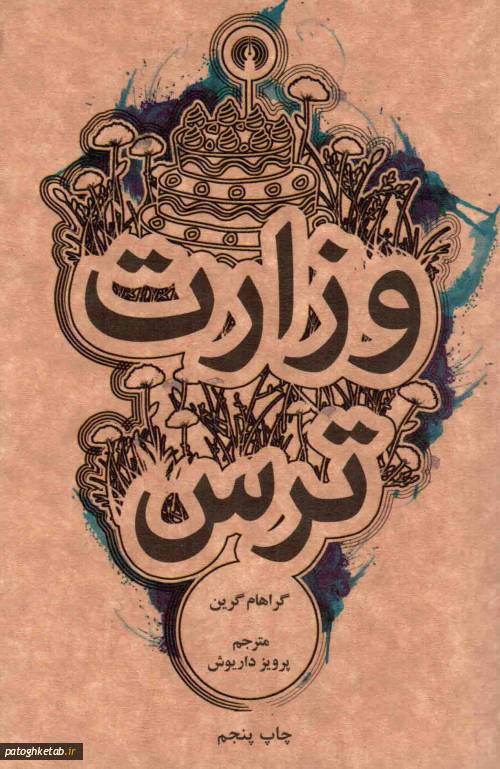 وزارت
ترس
گراهام گرین
مترجم
پرویز داریوش
چاپ پنجم
patoghketab.ir